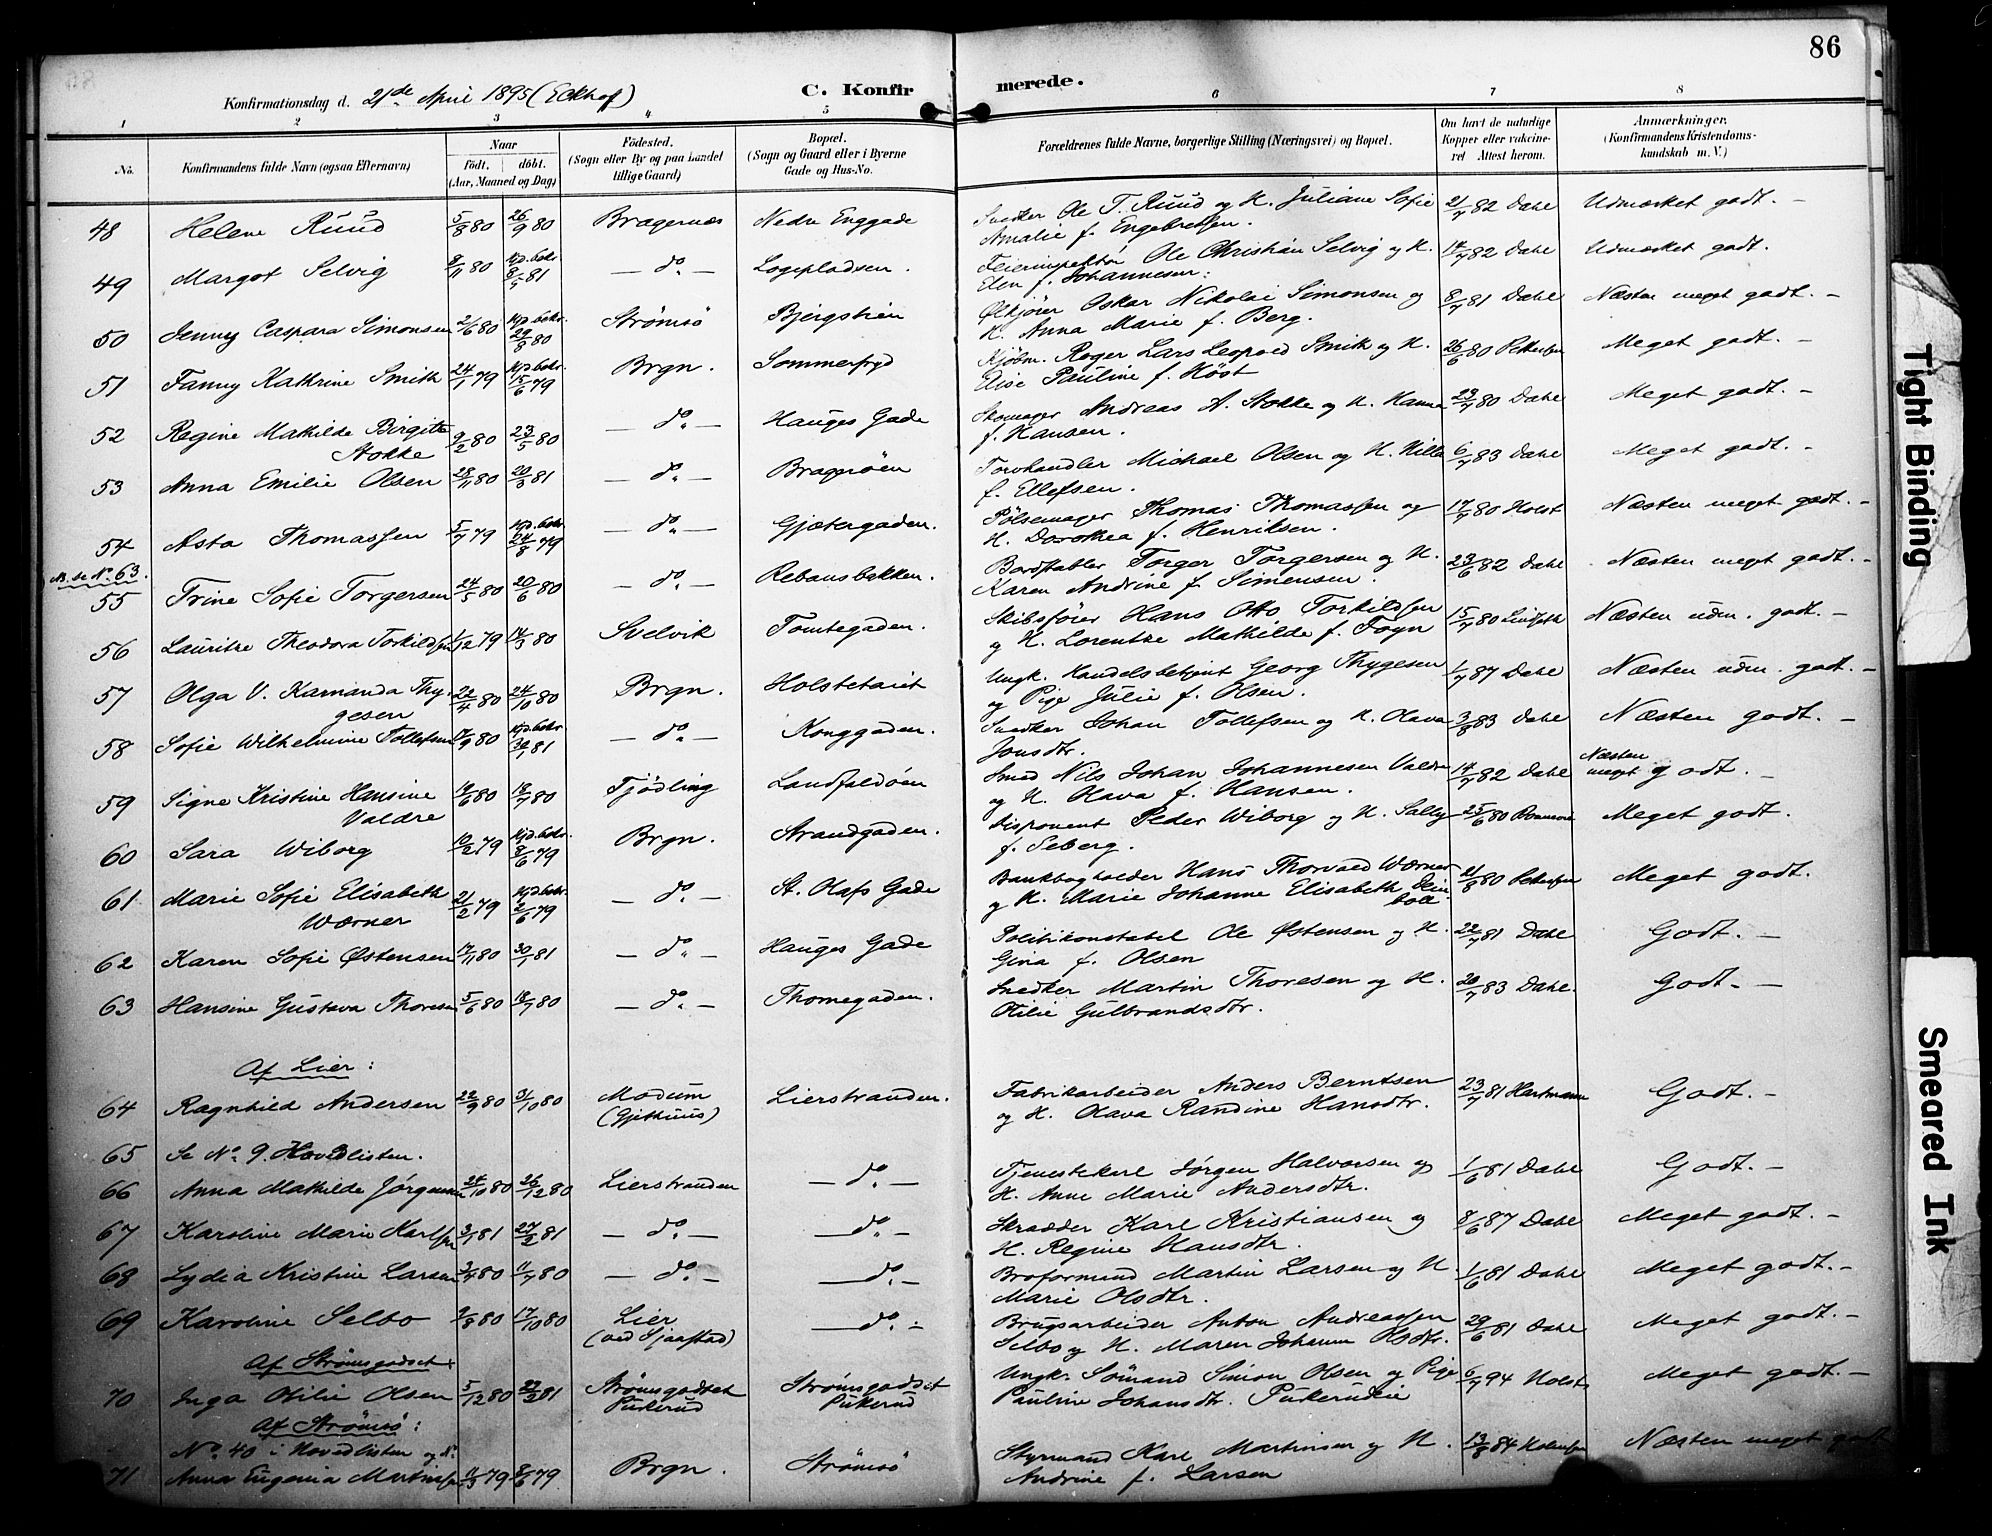 86
Konfirmationsdag d. 21de April 1895 (Eckhof)
C. Konfirmerede.
1 2 3 4 5 6 7 8
No. Konfirmandens fulde Navn (ogsaa Efternavn) Naar født. døbt. (Aar, Maaned og Dag) Födested. (Sogn eller By og paa Landet tillige Gaard) Bopæl. (Sogn og Gaard eller i Byerne Gade og Hus-No. Forældrenes fulde Navne, borgerlige Stilling (Næringsvei) og Bopæl. Om havt de naturlige Kopper eller vakcineret Attest herom. Anmærkninger. (Konfirmandens Kristendomskundskab m. V.)
48 Helene Ruud 5/8 80 26/9 80 Bragernæs Nedre Enggade Snedker Ole T. Ruud og H. Juliane Sofie 21/7 82 Dahl Udmærket godt. -
Amalie f. Engebretsen.
49 Margot Selvig 8/11 80 Hjd. bekr. 8/5 81 - do. - Logepladsen. Feierinspektør Ole Christian Selvig og H. 14/7 82 Dahl Udmærket godt.
Elen f. Johannesen.
50 Jenny Caspara Simonsen 2/6 80 Hjd. bekr. 29/8 80 Strømsö Bjergstien Ølkjører Oskar Nikolai Simonsen og 8/7 81 Dahl Næsten meget godt. -
H. Anna Marie f. Berg.
51 Fanny Kathrine Smith 24/1 79 Hjd. bekr. 15/6 79 Brgn. Sommerfryd Kjøbm. Roger Lars Leopold Smith og H. 26/6 80 Pettersen Meget godt. -
Elise Pauline f. Höst
52 Regine Mathilde Birgitte Stokke 9/2 80 23/5 80 - do. - Hauges Gade Skomager Andreas A. Stokke og H. Hanna 23/7 80 Dahl Meget godt. -
f. Hansen.
53 Anna Emilie Olsen 28/11 80 20/3 81 - do. - Bragerøen Torvhandler Michael Olsen og H. Nille 6/7 83 Dahl Meget godt. -
f. Ellefsen.
54 Asta Thomassen 5/7 79 Hjd. bekr. 24/8 79 - do. - Gjætergaden. Pølsemager Thomas Thomassen og 17/7 80 Holst Næsten meget godt. -
H. Dorothea f. Henriksen.
NB. se No. 63.
55 Trine Sofie Torgersen 24/5 80 20/6 80 - do. - Rebansbakken. Bordstabler Torger Torgersen og H. 23/6 82 Dahl Næsten meget godt. -
Karen Andrine f. Simensen.
56 Lauritze Theodora Torkildsen 1/12 79 14/3 80 Svelvik Tomtegaden. Skibsfører Hans Otto Torkildsen 15/7 80 Næsten udm. godt. -
og H. Lorentze Mathilde f. Foyn
57 Olga V. Kamanda Thygesen 22/4 80 24/10 80 Brgn. Holstetaiet Ungk. Handelsbetjent Georg Thygesen 1/7 87 Dahl Næsten udm. godt. -
og Pige Julie f. Olsen.
58 Sofie Wilhelmine Tollefsen 17/9 80 Hjd. bekr. 30/1 81 - do. - Konggaden. Snedker Johan Tollefsen og H. Olava 3/8 83 Dahl Næsten godt. -
Jonsdtr.
59 Signe Kristine Hansine Valdre 14/6 80 18/7 80 Tjødling Landfaldøen Smed Nils Johan Johannesen Valdre 14/7 82 Dahl Næsten meget godt. -
og H. Olava f. Hansen.
60 Sara Wiborg 10/2 79 Hjd. bekr. 8/6 79 Brgn. Strandgaden. Disponent Peder Wiborg og H. Sally 25/6 80 Meget godt.
f. Seberg.
61 Marie Sofie Elisabeth Wærner 21/2 79 Hjd. bekr. 2/6 79 - do. - St. Olafs Gade Bankbogholder Hans Thorvald Wærner 21/8 80 Pettersen Meget godt.
og H. Marie Johanne Elisabeth Deinboll.
62 Karen Sofie Østensen 17/11 80 30/1 81 - do. - Hauges Gade Politikonstabel Ole Østensen og H. 22/7 81 Dahl Godt. -
Gina f. Olsen
63 Hansine Gustava Thoresen 5/6 80 18/7 80 - do. - Thomegaden. Snedker Martin Thoresen og H. 20/7 83 Dahl. Godt. -
Otilie Gulbrandsdtr.
Af Lier:
64 Ragnhild Andersen 22/9 80 31/10 80 Modum (Gjethuus) Lierstranden. Fabrikarbeider Anders Berntsen 23/7 81 Hartmann Godt. -
og H. Olava Randine Hansdtr.
65 Se No. 9. Hovedlisten.
66 Anna Mathilde Jørgensen 24/10 80 26/12 80 Lierstranden - do. - Tjenestekarl Jørgen Halvorsen og 1/6 81 Dahl Godt. -
H. Anne Marie Andersdtr.
67 Karoline Marie Karlsen 3/1 81 27/2 81 - do. - - do. - Skrædder Karl Kristiansen og 8/6 87 Dahl Meget godt. -
H. Regine Hansdtr.
68 Lydia Kristine Larsen 3/4 80 11/7 80 - do. - - do. - Broformand Martin Larsen og H. 1/6 81 Dahl Meget godt. -
Marie Olsdtr.
69 Karoline Selbo 9/8 80 17/10 80 Lier (ved Gjaastad) - do. - Brugsarbeider Anton Andreassen 29/6 81 Dahl Meget godt. -
Selbo og H. Maren Johanne Olsdtr.
Af Strømsgodset
70 Inga Otilie Olsen 5/12 80 27/2 81 Strømsgodset Pukerud Strømsgodset Pukerud Ungk. Sømand Simon Olsen og Pige 6/7 94 Holst Meget godt. -
Pauline Johansdtr. Pukerudeie
Af Strømsö:
No. 40 i Hovedlisten og No.
71 Anna Eugenia Martinsen 11/3 79 8/6 79 Brgn. Strømsö Styrmand Karl Martinsen og H. 13/8 84 Næsten meget godt
Andrine f. Larsen
Tight Binding
Smeared Ink